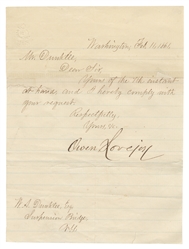 Washington, Feb 10, 186
Mr. Dunikle,
Dear Sir
Yours of the 7th instant
at hand and I hereby comply with
your request.
Respectfully,
Yours &c
Owen Lovejoy
W. S. Dunikle, Esq
Bridge,
Ills.